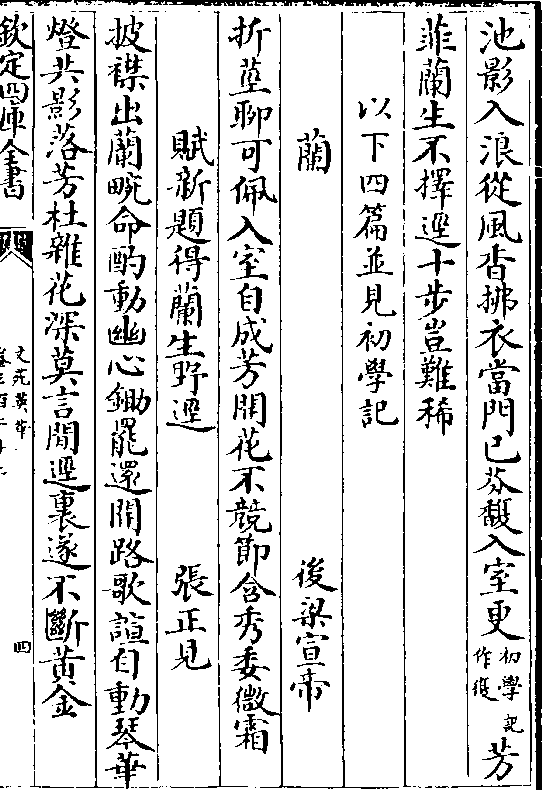 池影入浪從風香拂衣當門已芬馥入室更初學記作復芳
菲蘭生不擇逕十步豈難稀
以下四篇並見初學記
蘭 後梁宣帝
折莖聊可佩入室自成芳開花不競節含秀委微霜
賦新題得蘭生野逕 張正見
披襟出蘭畹命酌動幽心鋤罷還開路歌諠自動琴華
燈共影落芳杜雜花深莫言閒逕裏遂不斷黄金
欽定四庫全書
文苑英華
四